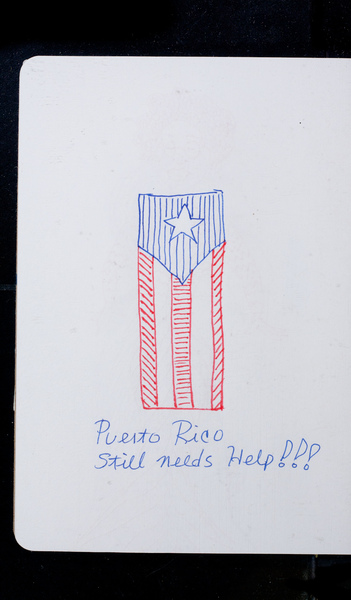 Puerto Rico
Still needs Help!!!